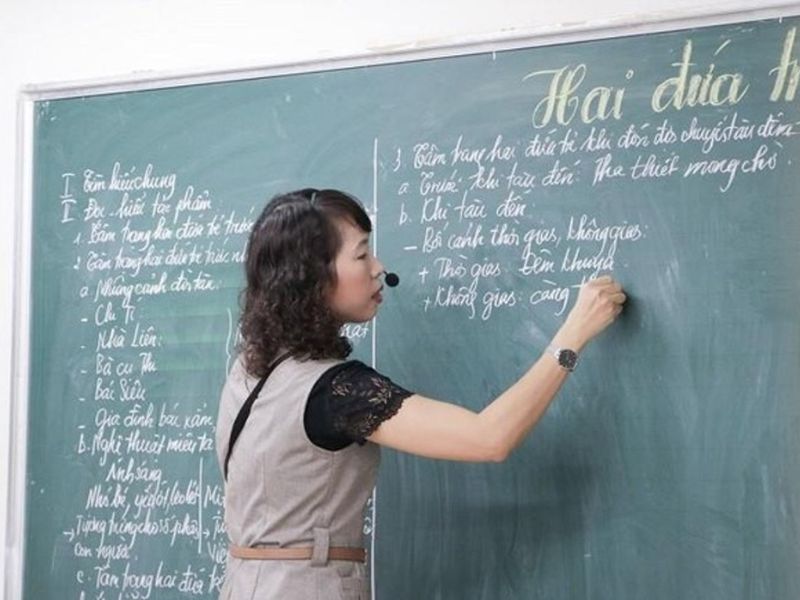 Hai đứa tr
I Tìm hiểu chung
II Đọc-hiểu tác phẩm
1. Tâm trạng hai đứa trẻ trước
2. Tâm trạng hai đứa trẻ trước
a. Những cảnh đời tàn:
- Chị Tí:
- Nhà Liên:
- Bà cụ Thi
- Bác Siêu
- Gia đình bác xẩm
b. Nghệ thuật miêu tả
Ánh sáng
Nhỏ bé, yếu ớt, leo lét
→ Tượng trưng cho số phận
con người
c. Tâm trạng hai đứa
3. Tâm trạng hai đứa trẻ khi đón đợi chuyến tàu đêm
a. Trước khi tàu đến: Tha thiết mong chờ.
b. Khi tàu đến
- Bối cảnh thời gian, không gian:
+ Thời gian: Đêm khuya
+ Không gian: càng